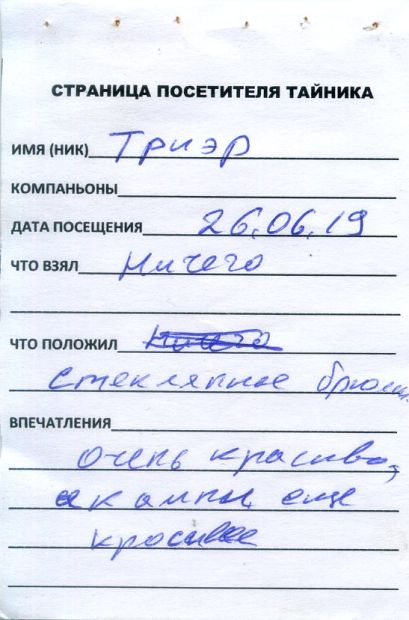 СТРАНИЦА ПОСЕТИТЕЛЯ ТАЙНИКА
ИМЯ (НИК) Триэр
КОМПАНЬОНЫ
ДАТА ПОСЕЩЕНИЯ 26.06.19
ЧТО ВЗЯЛ Ничего
ЧТО ПОЛОЖИЛ Ничего
стеклянные
ВПЕЧАТЛЕНИЯ
очень красиво,
еще
красивее